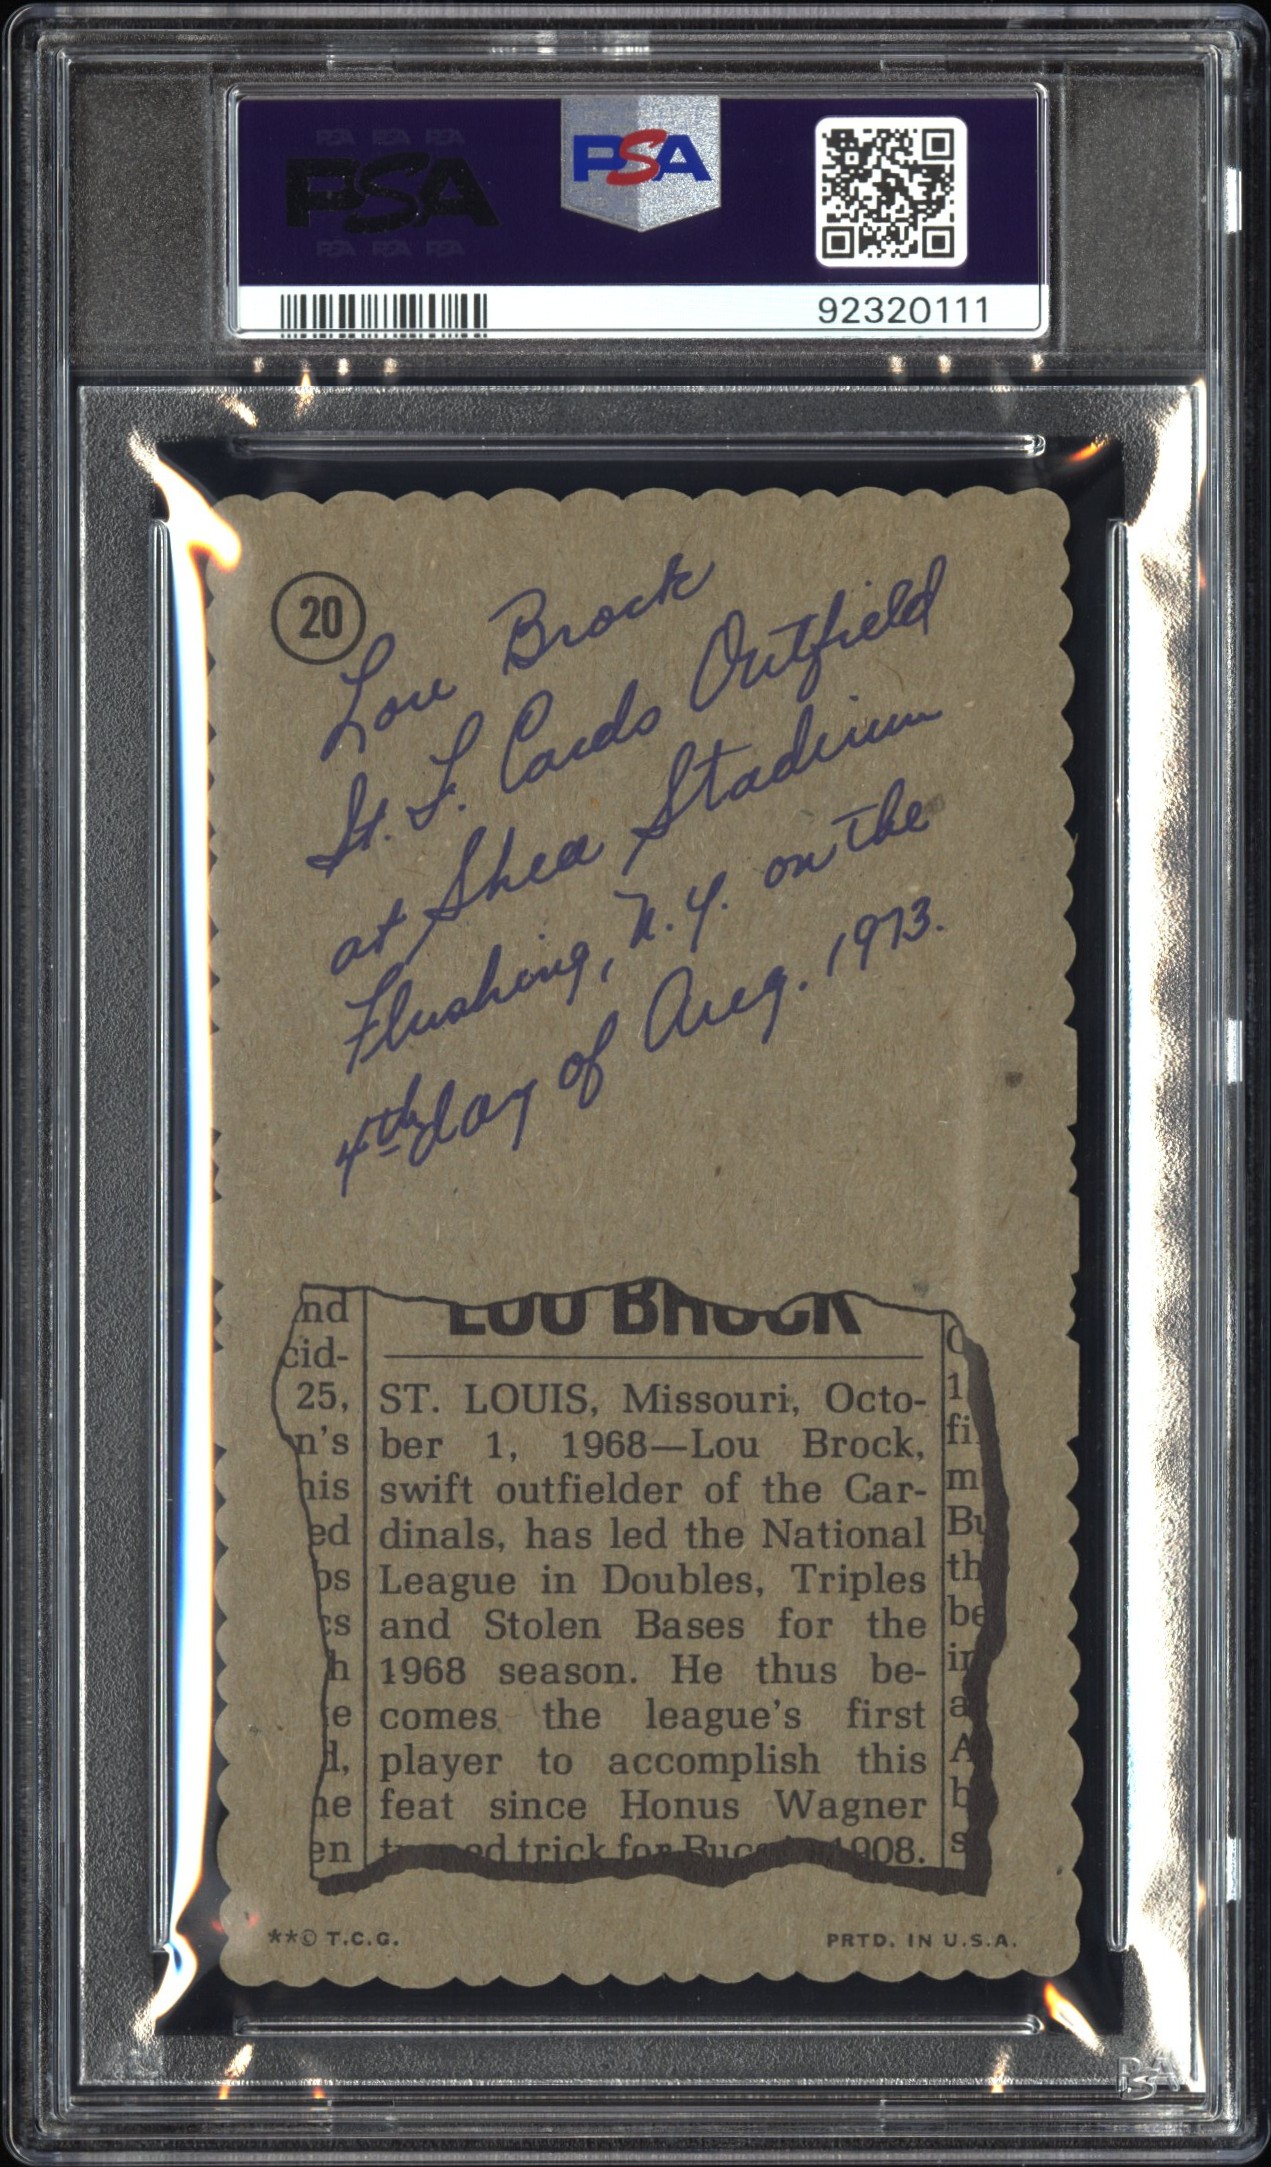 PSA PSA PSA
PSA
PSA PSA PSA
PSA
92320111
20
Lou Brock
St. L. Cards Outfield
at Shea Stadium
Flushing, N.Y. on the
4th day of Aug. 1973.
LOU BROCK
ST. LOUIS, Missouri, Octo-
ber 1, 1968—Lou Brock,
swift outfielder of the Car-
dinals, has led the National
League in Doubles, Triples
and Stolen Bases for the
1968 season. He thus be-
comes the league's first
player to accomplish this
feat since Honus Wagner
turned trick for Bucs in 1908.
nd
cid-
25,
n's
his
ed
os
cs
h
e
d,
he
en
1
fi
m
Bu
th
be
in
a
A
b
s
**© T.C.G.
PRTD. IN U.S.A.
PSA